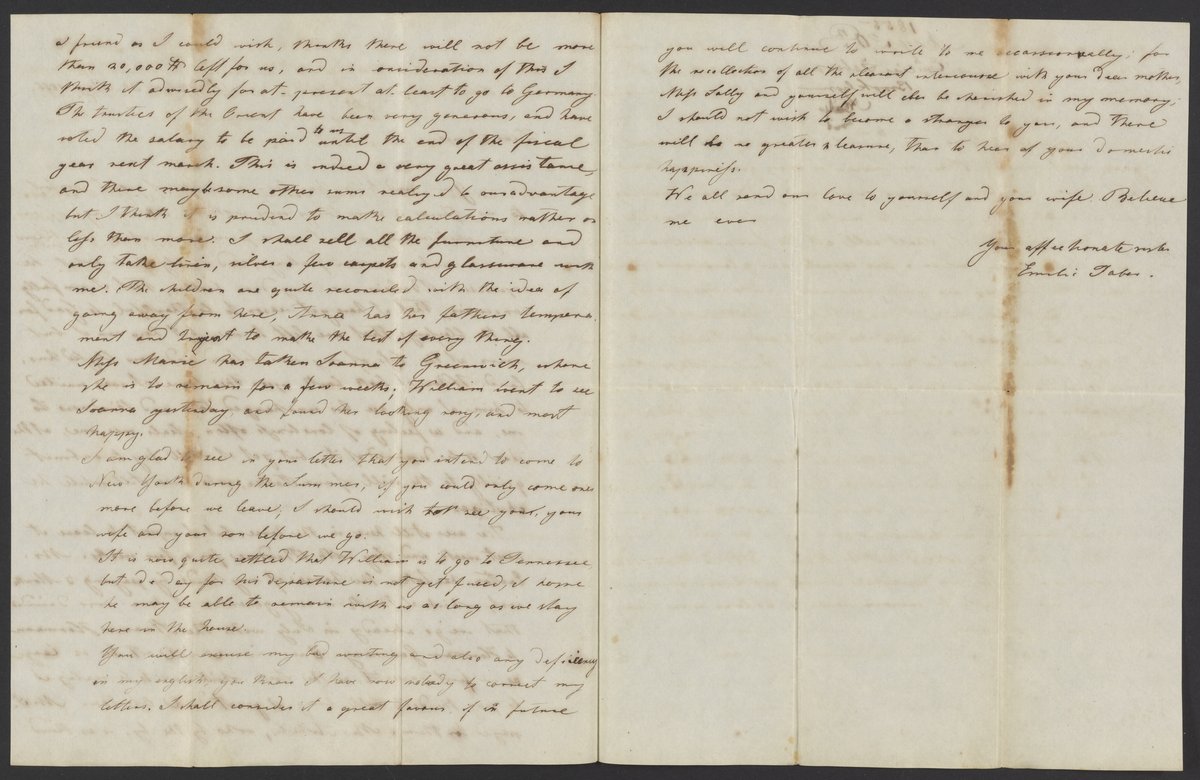 a friend as I could wish, thinks there will not be more
than 20,000 left for us, and in consideration of this I
think it advisedly for at present at least to go to Germany
The trustees of the have been very generous, and have
voted the salary to be paid to us until the end of the fiscal
year next march. This is indeed a very great assistance,
and there may be some other sums realized to our advantage
but I think it is prudend to make calculations rather on
less than more. I shall sell all the furniture and
only take linen, silver a few carpets and glassware with
me. The children are quite reconciled with the idea of
going away from here, Anna has her fathers tempera-
ment and to make the best of every thing.
Miss Marie has taken Joanna to Greenwich, where
she is to remain for a few weeks; William went to see
Joanna yesterday and found her looking rosy, and most
happy.
I am glad to see in your letter that you intend to come to
New York during the Summer; if you could only come once
more before we leave, I should wish to see you, your
wife and your son before we go.
It is now quite settled that William is to go to Tennessee
but de day for his departure is not yet fixed, I hope
he may be able to remain with us as long as we stay
here in the house.
You will excuse my bad writing and also any deficiency
in my english you know I have now nobody to correct my
letters. I shall consider it a great favour if in future
you will continue to write to me occassionally; for
the recollection of all the pleasant intercourse with your dear mother,
Miss Sally and yourself will be cherished in my memory;
I should not wish to become a stranger to you, and there
will be no greater pleasure, than to hear of your domestic
happiness.
We all send our love to yourself and your wife. Believe
me ever
Your affectionate sister
Emilie